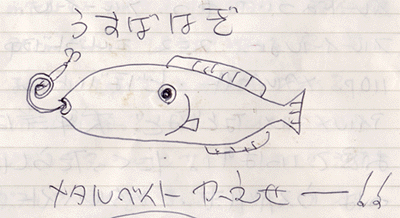 うすばはぎ
メタルベスト かえせー!!